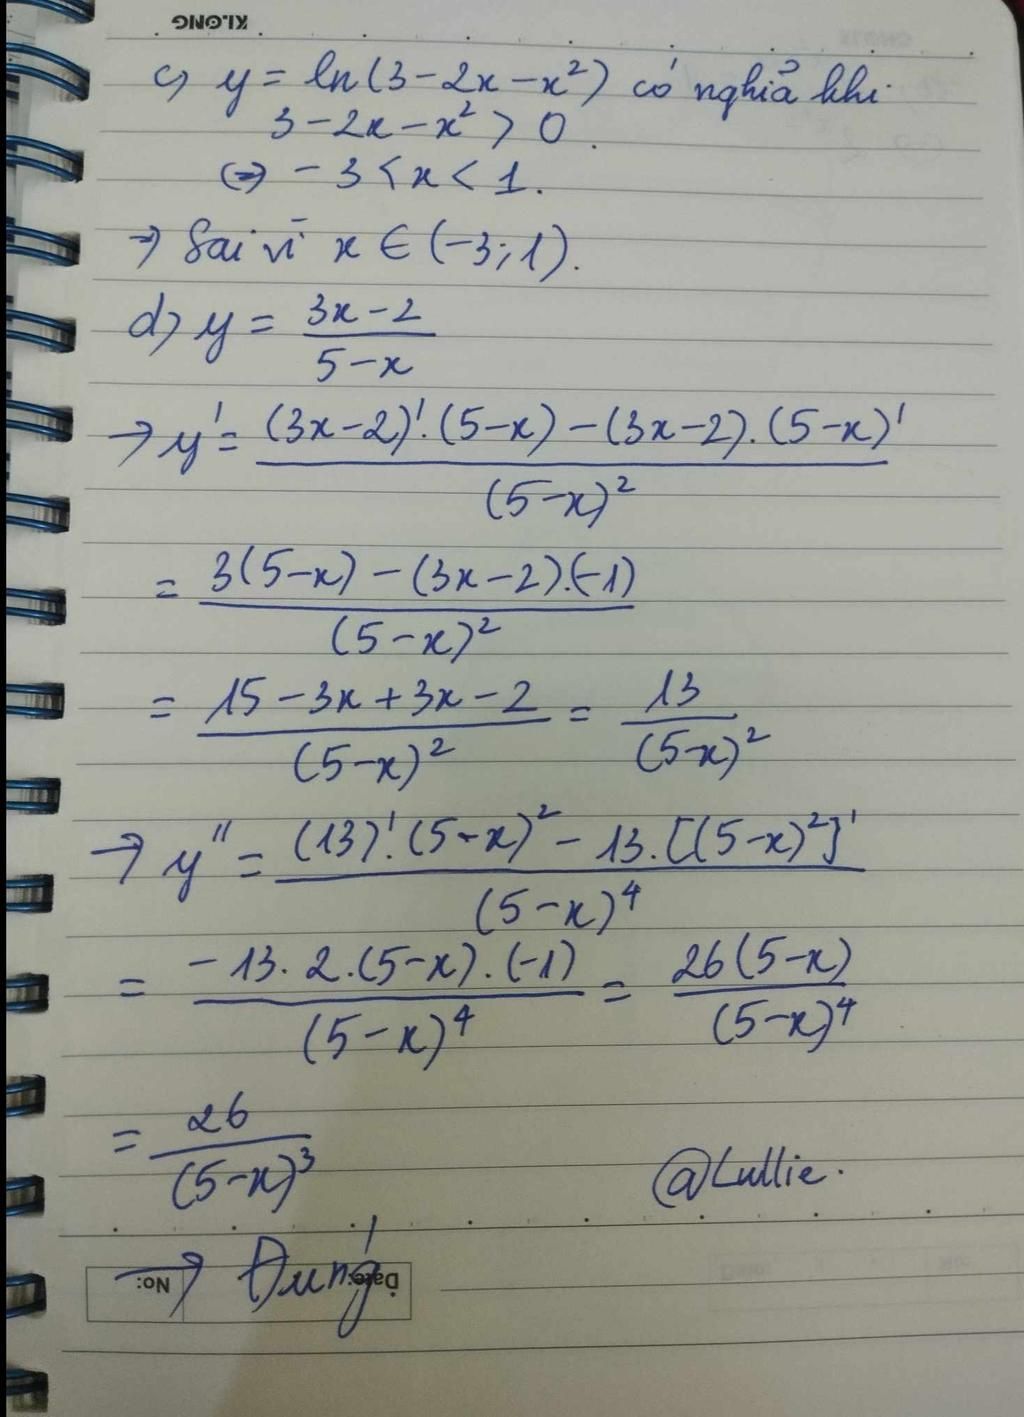 KLONG
c) y = ln(3 - 2x - x²) có nghĩa khi
3 - 2x - x² > 0.
(=) - 3 < x < 1.
→ Sai vì x ∈ (-3; 1).
d) y = (3x - 2)/(5 - x)
→ y' = ((3x - 2)'.(5 - x) - (3x - 2).(5 - x)')/(5 - x)²
= (3(5 - x) - (3x - 2).(-1))/(5 - x)²
= (15 - 3x + 3x - 2)/(5 - x)² = 13/(5 - x)²
→ y'' = ((13)'.(5 - x)² - 13.[(5 - x)²]')/(5 - x)⁴
= (- 13.2.(5 - x).(-1))/(5 - x)⁴ = 26(5 - x)/(5 - x)⁴
= 26/(5 - x)³
@Lullie.
→ Đúng
No:
Date: